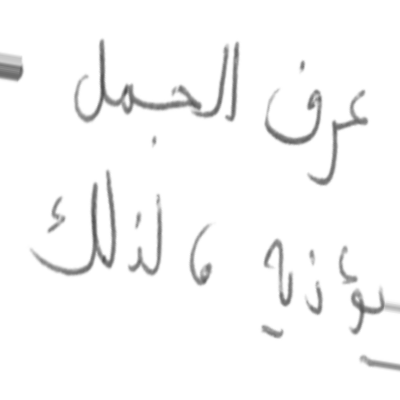 عرف الجمل
يؤذيه، لذلك